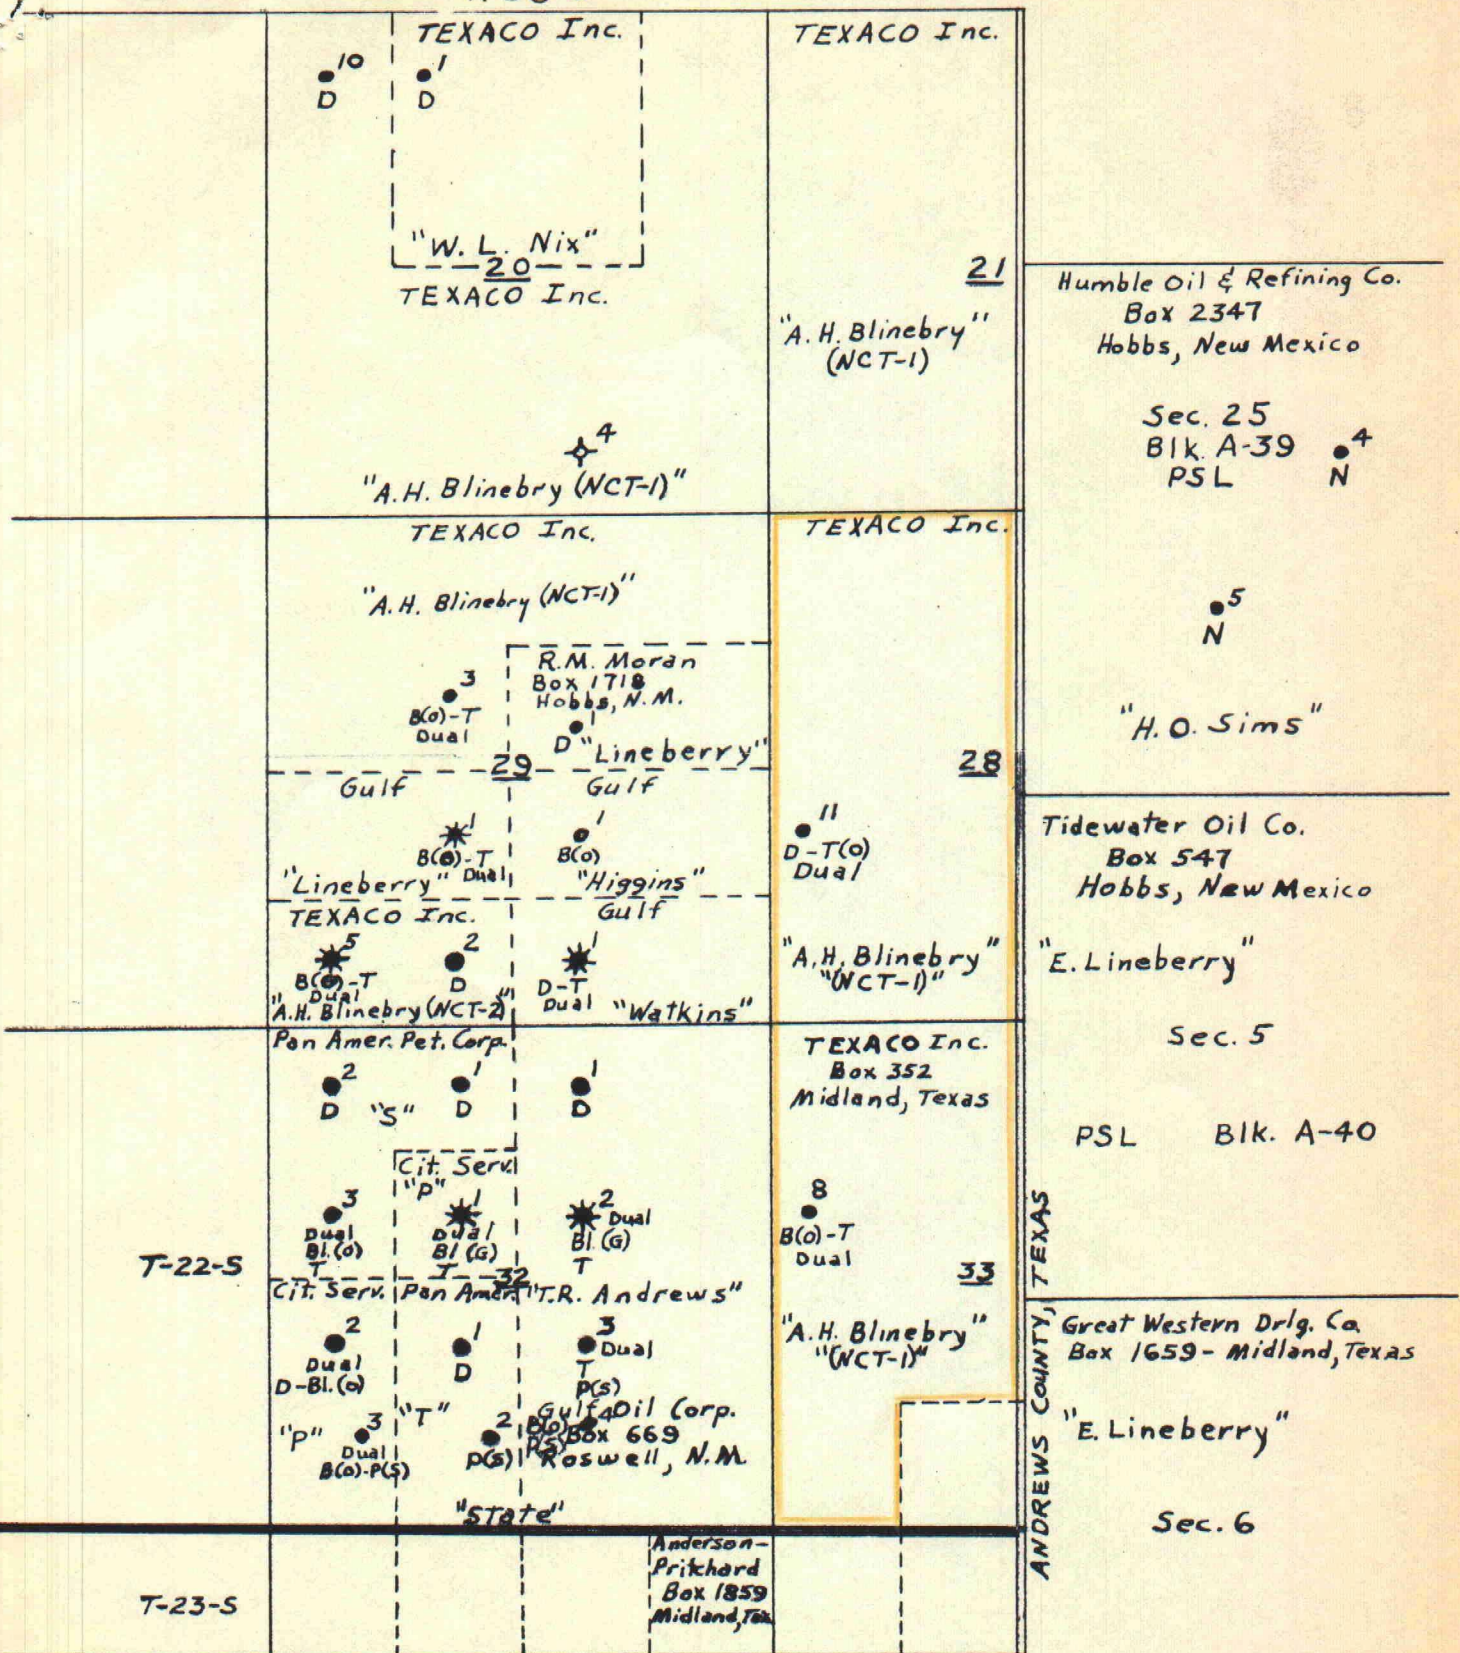 TEXACO Inc.
10
D
1
D
"W. L. Nix"
20
TEXACO Inc.
4
"A.H. Blinebry (NCT-1)"
TEXACO Inc.
21
"A.H. Blinebry"
(NCT-1)
Humble Oil & Refining Co.
Box 2347
Hobbs, New Mexico
Sec. 25
Blk. A-39
PSL
4
N
5
N
"H.O. Sims"
TEXACO Inc.
"A.H. Blinebry (NCT-1)"
3
B(o)-T
Dual
R.M. Moran
Box 1718
Hobbs, N.M.
1
D
"Lineberry"
29
Gulf
1
B(o)-T
Dual
"Lineberry"
Gulf
1
B(o)
"Higgins"
TEXACO Inc.
5
B(o)-T
Dual
2
D
"A.H. Blinebry (NCT-2)"
Gulf
1
D-T
Dual
"Watkins"
TEXACO Inc.
28
11
D-T(o)
Dual
"A.H. Blinebry"
"(NCT-1)"
Tidewater Oil Co.
Box 547
Hobbs, New Mexico
"E. Lineberry"
Sec. 5
PSL Blk. A-40
T-22-S
Pan Amer. Pet. Corp.
2
D
"S"
1
D
1
D
Cit. Serv.
"P"
3
Dual
Bl.(o)
T
1
Dual
Bl(G)
T
2
Dual
Bl.(G)
T
32
Cit. Serv.
Pan Amer.
"T.R. Andrews"
2
Dual
D-Bl.(o)
1
D
3
Dual
T
P(s)
"P"
3
Dual
B(o)-P(S)
"T"
2
P(s)
4
B(o)
P(S)
Gulf Oil Corp.
Box 669
Roswell, N.M.
"State"
TEXACO Inc.
Box 352
Midland, Texas
8
B(o)-T
Dual
33
"A.H. Blinebry"
"(NCT-1)"
ANDREWS COUNTY, TEXAS
Great Western Drlg. Co.
Box 1659 - Midland, Texas
"E. Lineberry"
Sec. 6
T-23-S
Anderson-
Pritchard
Box 1859
Midland, Tex